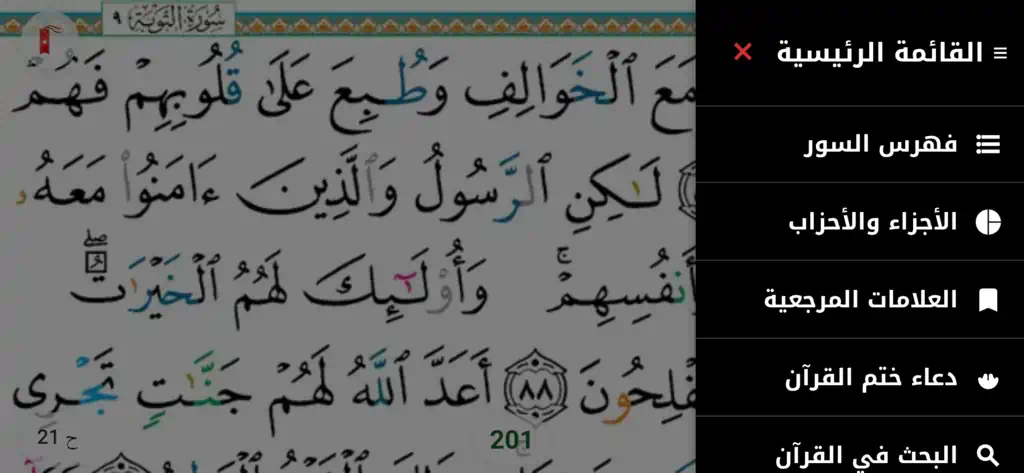 سُورَةُ التَّوْبَةِ ٩
مَعَ ٱلْخَوَالِفِ وَطُبِعَ عَلَىٰ قُلُوبِهِمْ فَهُمْ
لَٰكِنِ ٱلرَّسُولُ وَٱلَّذِينَ ءَامَنُوا۟ مَعَهُۥ
أَنفُسِهِمْ ۚ وَأُو۟لَٰٓئِكَ لَهُمُ ٱلْخَيْرَٰتُ ۖ
فْلِحُونَ ٨٨ أَعَدَّ ٱللَّهُ لَهُمْ جَنَّٰتٍ تَجْرِى
ح 21
201
القائمة الرئيسية
فهرس السور
الأجزاء والأحزاب
العلامات المرجعية
دعاء ختم القرآن
البحث في القرآن